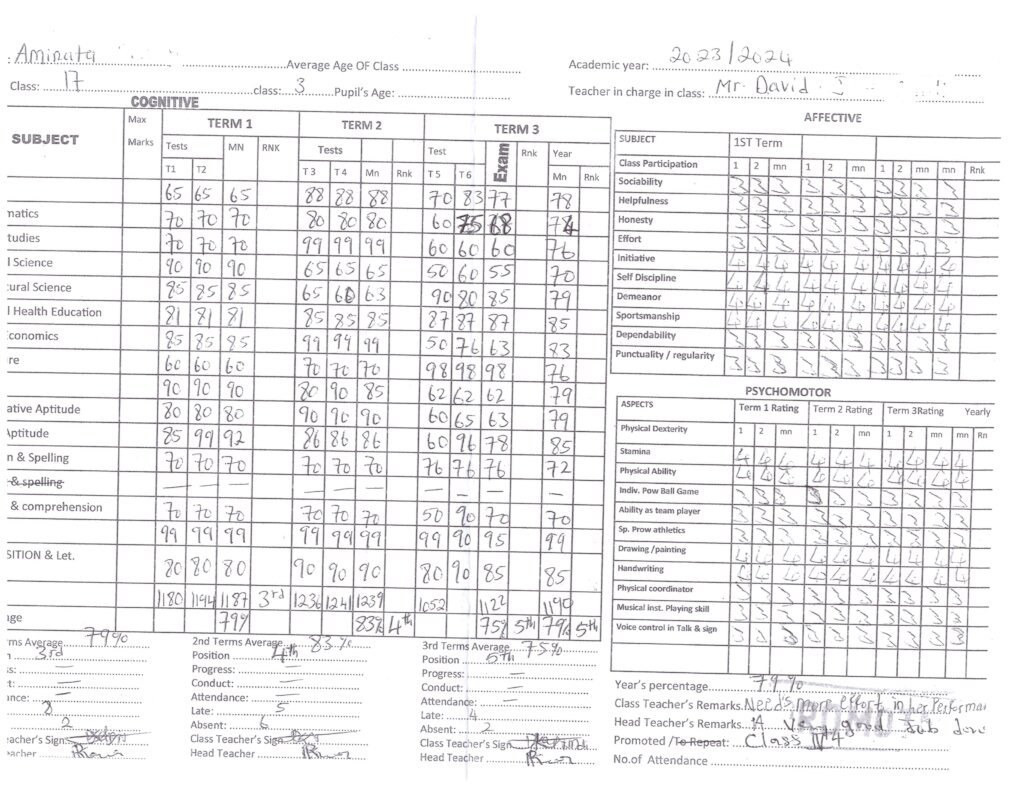 : Aminata
Average Age OF Class
Academic year: 2023/2024
Class: 17 class: 3 Pupil's Age:
Teacher in charge in class: Mr. David J
COGNITIVE
AFFECTIVE
SUBJECT Max Marks TERM 1 TERM 2 TERM 3
Tests MN RNK Tests Test Exam Rnk Year
T1 T2 T3 T4 Mn Rnk T5 T6 Mn Rnk
65 65 65 88 88 88 70 83 77 78
matics 70 70 70 80 80 80 60 75 68 74
tudies 70 70 70 99 99 99 60 60 60 76
l Science 90 90 90 65 65 65 50 60 55 70
tural Science 85 85 85 65 60 63 90 80 85 79
l Health Education 81 81 81 85 85 85 87 87 87 85
conomics 85 85 85 99 99 99 50 76 63 83
re 60 60 60 70 70 70 98 98 98 76
90 90 90 80 90 85 62 62 62 79
ative Aptitude 80 80 80 90 90 90 60 65 63 79
Aptitude 85 99 92 86 86 86 60 96 78 85
n & Spelling 70 70 70 70 70 70 76 76 76 72
& spelling — — — — — — — — — —
& comprehension 70 70 70 70 70 70 50 90 70 70
99 99 99 99 99 99 99 90 95 99
SITION & Let. 80 80 80 90 90 90 80 90 85 85
1180 1194 1187 3rd 1236 1241 1239 1052 1122 1190
ge 79% 83% 4th 75% 5th 79% 5th
rms Average 79%
3rd
s: —
t: —
ance: —
8
2
eacher's Sign:
eacher
2nd Terms Average 83%
Position 4th
Progress: —
Conduct: —
Attendance: —
Late: 5
Absent: 6
Class Teacher's Sign
Head Teacher
3rd Terms Average 75%
Position 5th
Progress: —
Conduct: —
Attendance: —
Late: 4
Absent: 2
Class Teacher's Sign
Head Teacher
SUBJECT 1ST Term
Class Participation 1 2 mn 1 2 mn 1 2 mn mn Rnk
Sociability 3 3 3 3 3 3 3 3 3 3
Helpfulness 3 3 3 3 3 3 3 3 3 3
Honesty 3 3 3 3 3 3 3 3 3 3
Effort 3 3 3 3 3 3 3 3 3 3
Initiative 4 4 4 4 4 4 4 4 4 4
Self Discipline 4 4 4 4 4 4 4 4 4 4
Demeanor 4 4 4 4 4 4 4 4 4 4
Sportsmanship 4 4 4 4 4 4 4 4 4 4
Dependability 3 3 3 3 3 3 3 3 3 3
Punctuality / regularity 3 3 3 3 3 3 3 3 3 3
PSYCHOMOTOR
ASPECTS Term 1 Rating Term 2 Rating Term 3Rating Yearly
Physical Dexterity 1 2 mn 1 2 mn 1 2 mn mn Rn
Stamina 4 4 4 4 4 4 4 4 4 4
Physical Ability 4 4 4 4 4 4 4 4 4 4
Indiv. Pow Ball Game 3 3 3 3 3 3 3 3 3 3
Ability as team player 3 3 3 3 3 3 3 3 3 3
Sp. Prow athletics 3 3 3 3 3 3 3 3 3 3
Drawing /painting 4 4 4 4 4 4 4 4 4 4
Handwriting 4 4 4 4 4 4 4 4 4 4
Physical coordinator 3 3 3 3 3 3 3 3 3 3
Musical inst. Playing skill 3 3 3 3 3 3 3 3 3 3
Voice control in Talk & sign 3 3 3 3 3 3 3 3 3 3
Year's percentage 79%
Class Teacher's Remarks. Needs more effort in her Performan
Head Teacher's Remarks. A Very good Job done
Promoted /To Repeat: Class 4
No.of Attendance